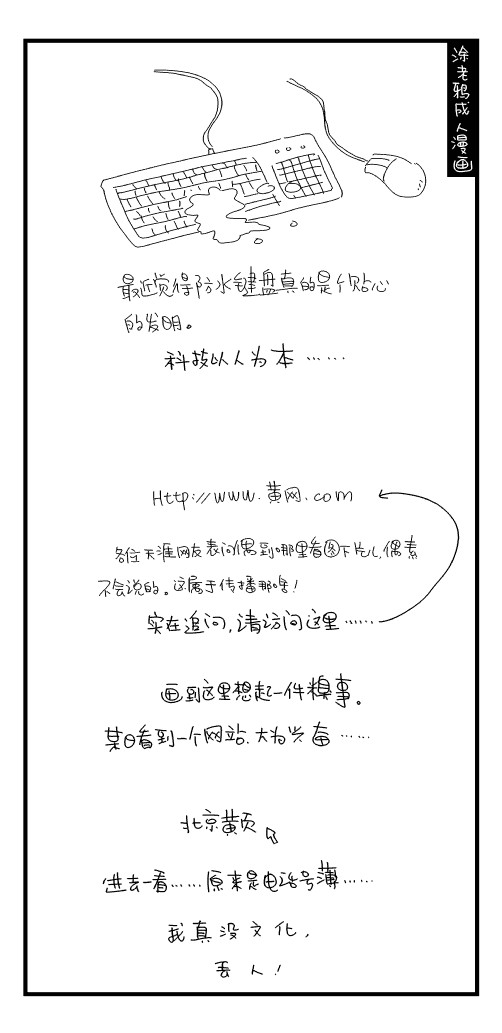 涂老鸦成人漫画
最近觉得防水键盘真的是个贴心
的发明。
科技以人为本……
Http://www.黄网.com
各位天涯网友表问偶到哪里看图下片儿,偶素
不会说的。这属于传播那啥!
实在追问,请访问这里……
画到这里想起一件糗事。
某日看到一个网站.大为兴奋……
北京黄页
进去一看……原来是电话号薄……
我真没文化,
丢人!